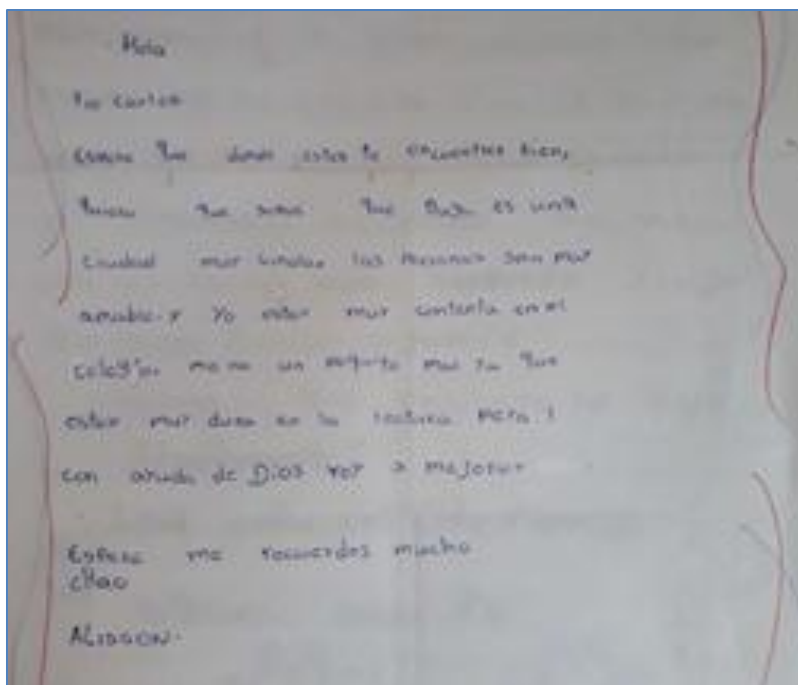 Hola
Tio Carlos
Espero que donde estes te encuentres bien,
quiero que sepas que es una
ciudad muy linda, las personas son muy
amable y yo estoy muy contenta en el
colegio, me un que
estoy muy dura en la lectura pero
con ayuda de Dios voy a mejorar
Espero me recuerdes mucho
chao
ALISSON.